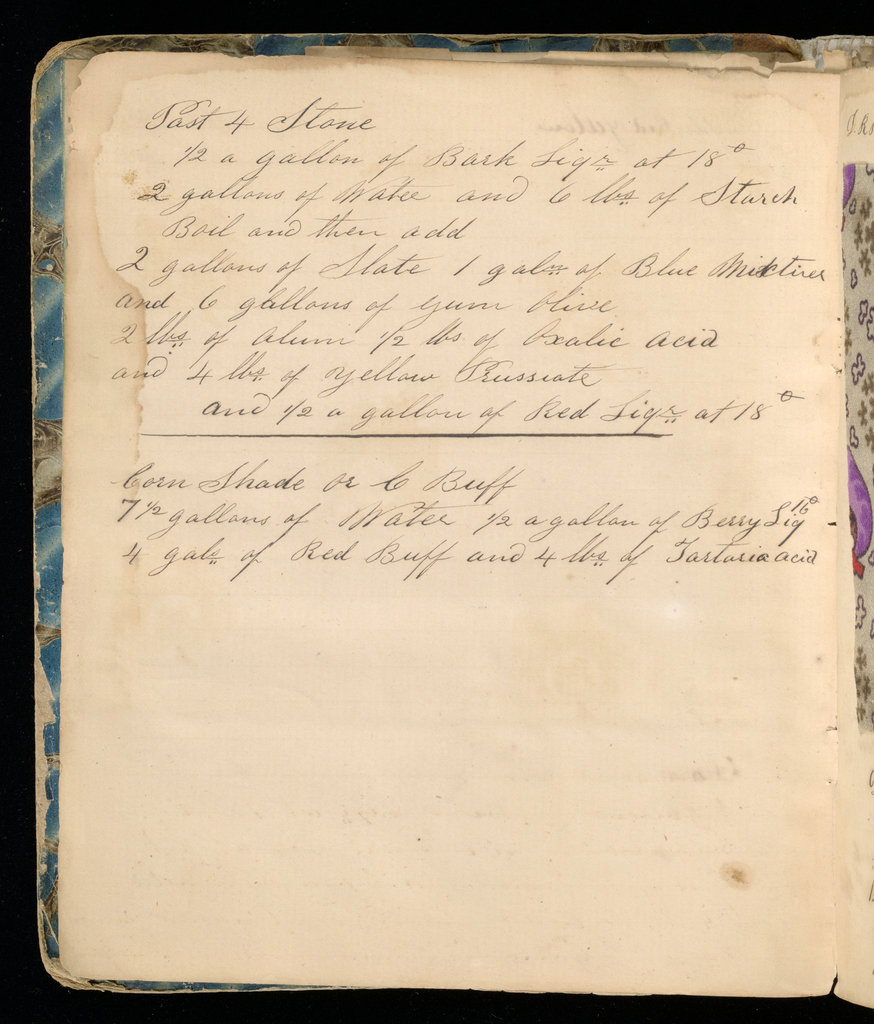 Past 4 Stone
1/2 a gallon of Bark Liqr at 18°
2 gallons of Water and 6 lbs of Starch
Boil and then add
2 gallons of Slate 1 galn of Blue Mixtures
and 6 gallons of Gum Olive
2 lbs of Alum 1/2 lbs of Oxalic Acid
and 4 lbs of Yellow Prussiate
and 1/2 a gallon of Red Liqr at 18°
Corn Shade or C Buff
7 1/2 gallons of Water 1/2 a gallon of Berry Liq 16°
4 gals of Red Buff and 4 lbs of Tartaria acid